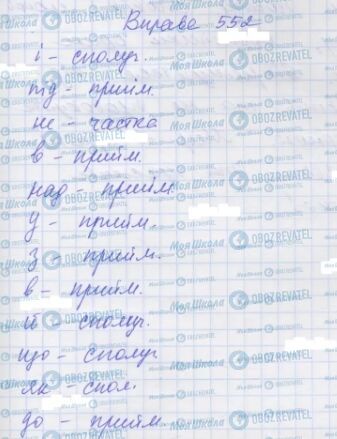 Вправа 552
і - сполуч.
під - прийм.
не - частка
в - прийм.
над - прийм
у - прийм.
з - прийм.
в - прийм.
й - сполуч.
що - сполуч
як - спол.
до - прийм.